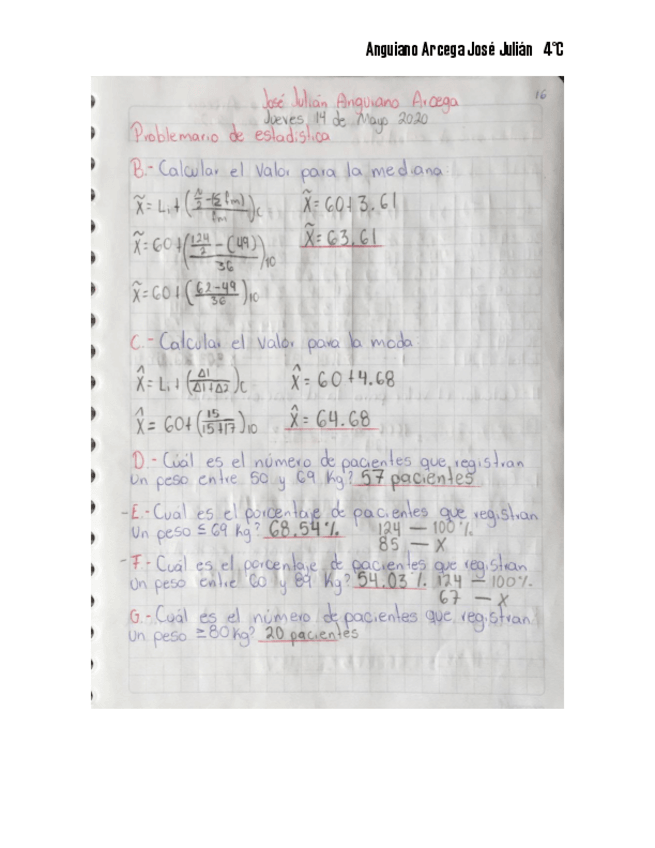 Anguiano Arcega José Julián 4°C
16
José Julián Anguiano Arcega
Jueves, 14 de Mayo 2020
Problemario de estadistica
B.- Calcular el valor para la mediana.
x̃ = Li + ((n/2 - (Σ fm)) / fm) c
x̃ = 60 + 3.61
x̃ = 60 + ((124/2 - (49)) / 36) 10
x̃ = 63.61
x̃ = 60 + ((62-49) / 36) 10
C.- Calcular el valor para la moda.
x̂ = Li + (Δ1 / (Δ1+Δ2)) c
x̂ = 60 + 4.68
x̂ = 60 + (15 / (15+17)) 10
x̂ = 64.68
D.- Cuál es el número de pacientes que registran
Un peso entre 50 y 69 Kg? 57 pacientes
- E.- Cual es el porcentaje de pacientes que registran
Un peso ≤ 69 Kg? 68.54%
124 — 100%
85 — x
- F.- Cuál es el porcentaje de pacientes que registran
Un peso entre 60 y 89 Kg? 54.03% 124 — 100%
67 — x
G.- Cuál es el número de pacientes que registran
Un peso ≥ 80 Kg? 20 pacientes